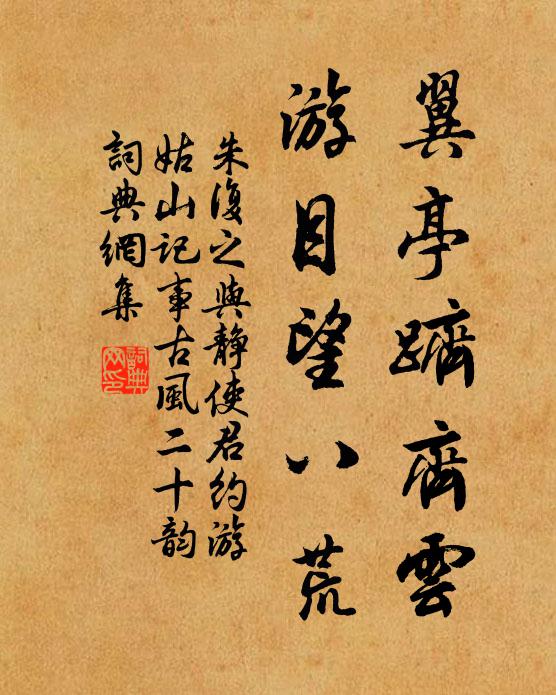 翼亭躋齊雲
游目望八荒
朱復之與靜使君約游
姑山記事古風二十韵
詞典網集
詞典
网印